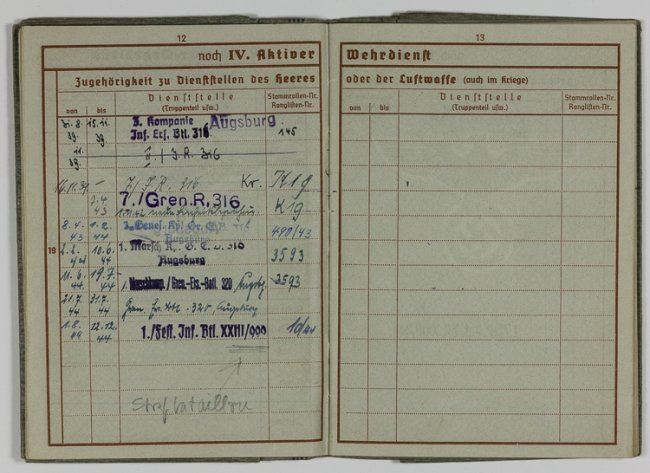 12
noch IV. Aktiver
Zugehörigkeit zu Dienststellen des Heeres
von bis
Dienststelle
(Truppenteil usw.)
Stammrollen-Nr.
Ranglisten-Nr.
31. 8. 15. 11.
39. 39.
3. Kompanie Augsburg
Inf. Ers. Btl. 316
145
I.R. 316
16. 11. 39 –
7./I.R. 316 Kr. K 19
7. 4.
43
7./Gren.R. 316
K 19
8. 4. 1. 2.
43 44
490/43
Augsburg
19
2. 2. 10. 6.
44 44
1. Marsch
Augsburg
3593
11. 6. 19. 7.
44 44
1. Marschkomp./Gren.-Ers.-Batl. 320 Augsbg.
3593
21. 7. 31. 7.
44 44
320, Augsburg
1. 8. 22. 12.
44 44
1./Fest. Inf. Btl. XXIII/999
Strafbataillon
13
Wehrdienst
oder der Luftwaffe (auch im Kriege)
von bis
Dienststelle
(Truppenteil usw.)
Stammrollen-Nr.
Ranglisten-Nr.